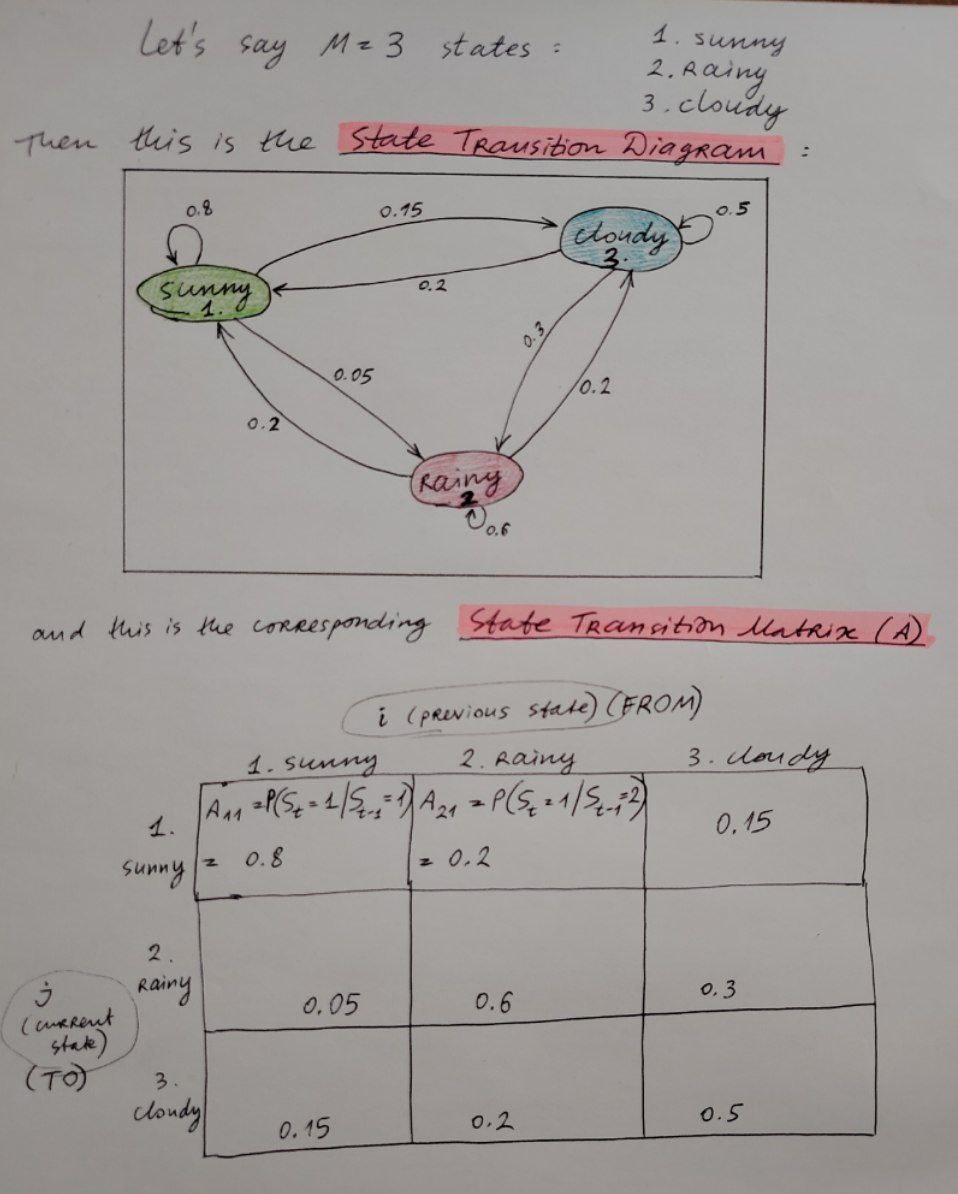 Let's say M = 3 states :
1. sunny
2. Rainy
3. cloudy
Then this is the State Transition Diagram :
0.8
0.15
0.5
cloudy
3.
sunny
1.
0.2
0.3
0.05
0.2
0.2
Rainy
2
0.6
and this is the corresponding State Transition Matrix (A)
i (previous state) (FROM)
1. sunny 2. Rainy 3. cloudy
A11 = P(St = 1/St-1 = 1) A21 = P(St = 1/St-1 = 2)
1. 0.15
sunny = 0.8 = 0.2
2.
Rainy 0.05 0.6 0.3
j
(current
state)
(TO)
3.
cloudy 0.15 0.2 0.5